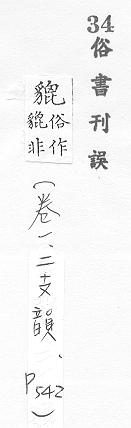 34
俗書刊誤
貔
俗作
貔非
(卷一、二支韻、P542)